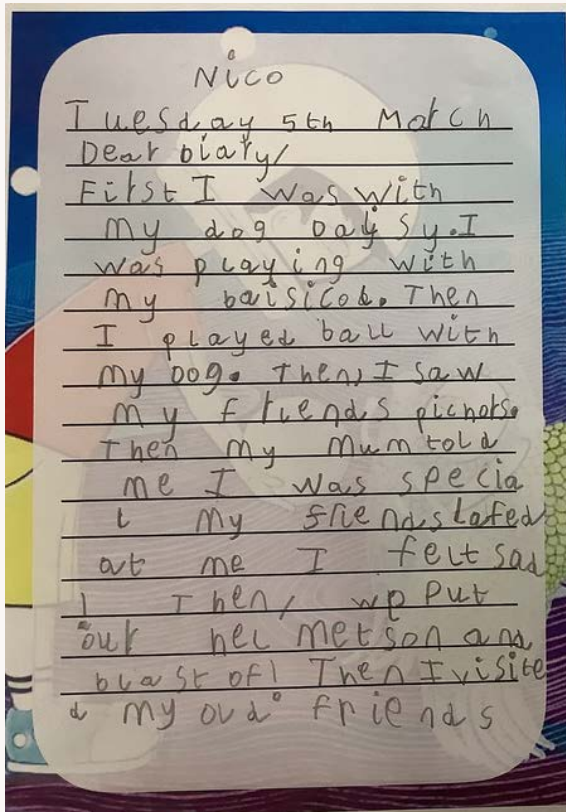 Nico
Tuesday 5th March
Dear Diary/
First I was with
my dog Daisy. I
was playing with
my baisicod. Then
I played ball with
my Dog. Then, I saw
my friends pichors.
Then my Mum told
me I was specia
l my friends lafed
at me I felt sad
! Then, we put
our hel metson and
blast of! Then I visite
d my oud friends